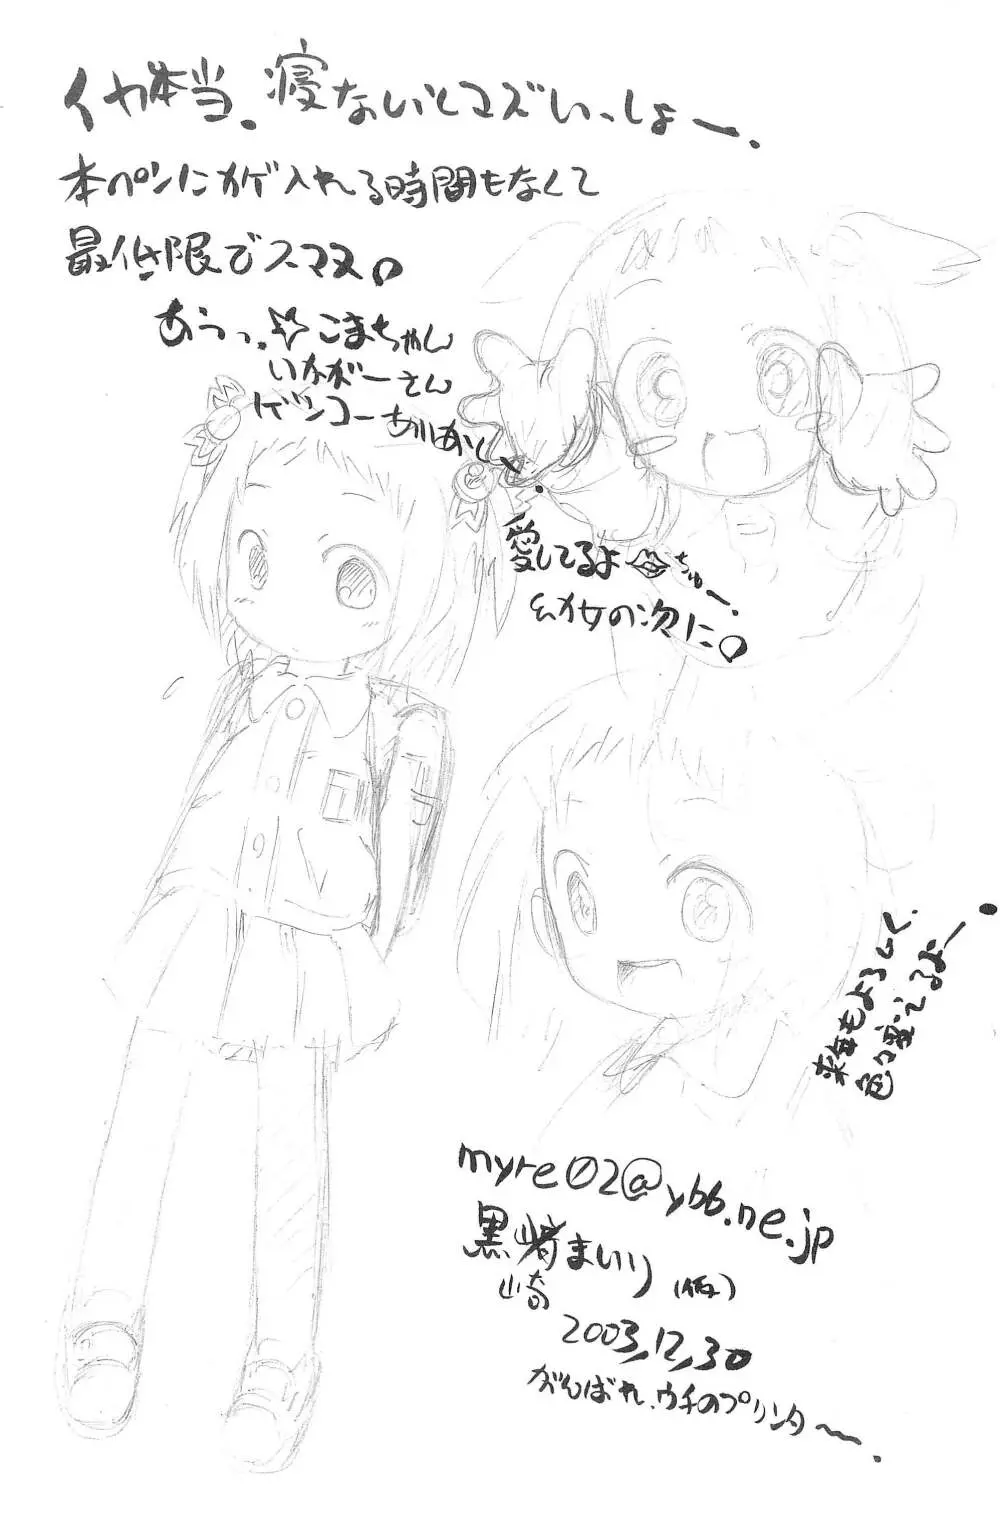 イヤ本当。寝ないとマズいっしょー。
本ペンにカゲ入れる時間もなくて
最低限でスマヌ。
あうっ。☆こまちゃん
いかがーさん
ゲンコーありあとし
愛してるよ ちゅー。
幼女の次に。
来年もよろしく、
色々変えるよー。
myre02@ybb.ne.jp
黒崎まいり(仮)
崎
2003,12,30
がんばれ、ウチのプリンタ〜。